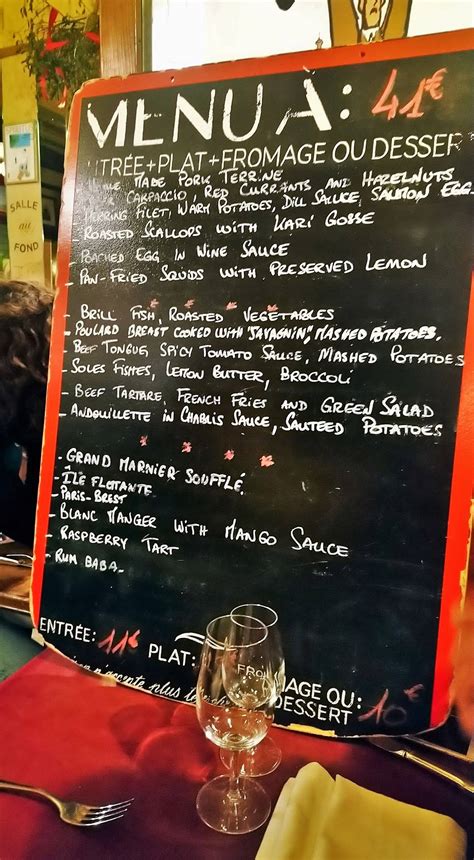 MENU À: 41€
ENTRÉE+PLAT+FROMAGE OU DESSER
MADE PORK TERRINE
CARPACCIO, RED CURRANTS AND HAZELNUTS
HERRING FILET, WARM POTATOES, DILL SAUCE, SALMON EGG
- ROASTED SCALLOPS WITH KARI GOSSE
- POACHED EGG IN WINE SAUCE
- PAN-FRIED SQUIDS WITH PRESERVED LEMON
- BRILL FISH, ROASTED VEGETABLES
- POULARD BREAST COOKED WITH "SAVAGNIN", MASHED POTATOES.
- BEEF TONGUE, SPICY TOMATO SAUCE, MASHED POTATOES
- SOLES FISHES, LEMON BUTTER, BROCCOLI
- BEEF TARTARE, FRENCH FRIES AND GREEN SALAD
- ANDOUILLETTE IN CHABLIS SAUCE, SAUTEED POTATOES
- GRAND MARNIER SOUFFLÉ.
- ÎLE FLOTANTE
- PARIS-BREST
- BLANC MANGER WITH MANGO SAUCE
- RASPBERRY TART
- RUM BABA_
ENTRÉE: 11€ PLAT: FROMAGE OU:
DESSERT 10€
n'accepte plus
SALLE
au
FOND